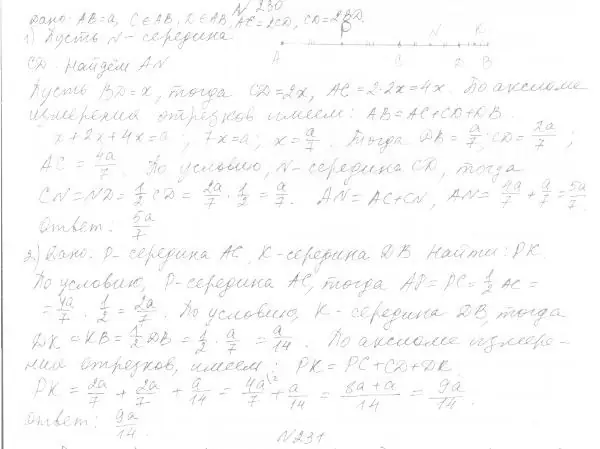 N 230
Дано: AB=a, C∈AB, D∈AB, AC=2CD, CD=2BD.
1) Пусть N - середина
P
A C N D K B
CD. Найдём AN
Пусть BD=x, тогда CD=2x, AC=2·2x=4x. По аксиоме
измерения отрезков имеем: AB=AC+CD+DB.
x+2x+4x=a; 7x=a; x=a/7. Тогда DB=a/7; CD=2a/7;
AC=4a/7. По условию, N-середина CD, тогда
CN=ND=1/2 CD=2a/7·1/2=a/7. AN=AC+CN, AN=4a/7+a/7=5a/7.
Ответ: 5a/7
2) Дано: P-середина AC, K-середина DB. Найти: PK.
По условию, P-середина AC, тогда AP=PC=1/2 AC=
=4a/7·1/2=2a/7. По условию, K-середина DB, тогда
DK=KB=1/2 DB=1/2·a/7=a/14. По аксиоме измере-
ния отрезков, имеем: PK=PC+CD+DK.
PK=2a/7+2a/7+a/14=4a/7+a/14=8a+a/14=9a/14.
Ответ: 9a/14.
N 231